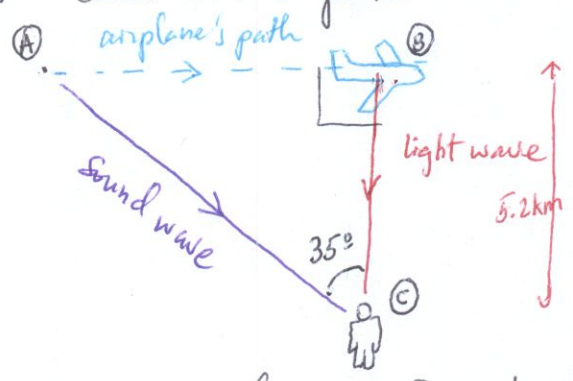 A
airplane's path
B
light wave
5.2km
sound wave
35°
C